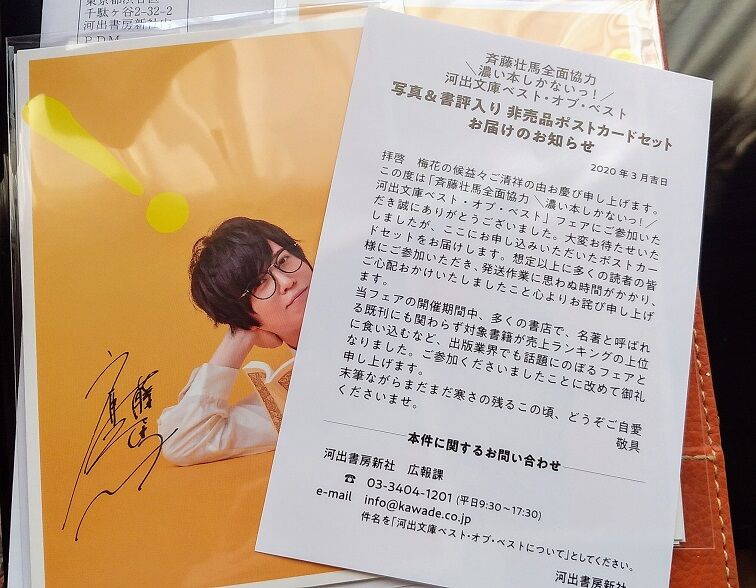 東京都渋谷区
千駄ヶ谷2-32-2
河出書房新社内
P.D.M
斉藤壮馬全面協力
＼濃い本しかないっ！／
河出文庫ベスト・オブ・ベスト
写真＆書評入り 非売品ポストカードセット
お届けのお知らせ
2020年3月吉日
拝啓　梅花の候益々ご清祥の由お慶び申し上げます。
この度は「斉藤壮馬全面協力 ＼濃い本しかないっ！／
河出文庫ベスト・オブ・ベスト」フェアにご参加いた
だき誠にありがとうございました。大変お待たせいた
しましたが、ここにお申し込みいただいたポストカー
ドセットをお届けします。想定以上に多くの読者の皆
様にご参加いただき、発送作業に思わぬ時間がかかり、
ご心配おかけいたしましたこと心よりお詫び申し上げ
ます。
当フェアの開催期間中、多くの書店で、名著と呼ばれ
る既刊にも関わらず対象書籍が売上ランキングの上位
に食い込むなど、出版業界でも話題にのぼるフェアと
なりました。ご参加くださいましたことに改めて御礼
申し上げます。
末筆ながらまだまだ寒さの残るこの頃、どうぞご自愛
くださいませ。
敬具
本件に関するお問い合わせ
河出書房新社　広報課
☎ 03-3404-1201 (平日9:30〜17:30)
e-mail info@kawade.co.jp
件名を「河出文庫ベスト・オブ・ベストについて」としてください。
河出書房新社